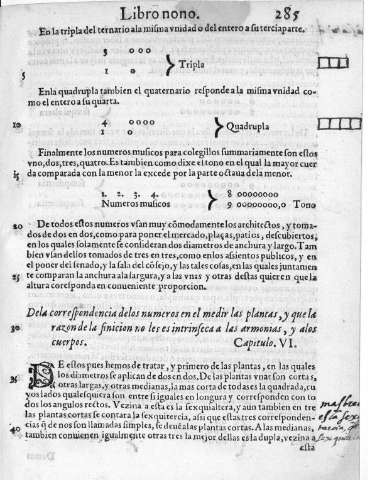 Libro nono. 285
En la tripla del ternario ala misma vnidad o del entero a su tercia parte.
3 ooo
Tripla
5
1 o
Enla quadrupla tambien el quaternario responde a la misma vnidad co-
mo el entero a su quarta.
10 4 oooo
Quadrupla
1 o
Finalmente los numeros musicos para colegillos summariamente son estos
vno, dos, tres, quatro. Es tambien como dixe el tono en el qual la mayor cuer
15 da comparada con la menor la excede por la parte octaua dela menor.
1. 2. 3. 4. 8 oooooooo
Numeros musicos 9 oooooooo,o Tono
20 De todos estos numeros vsan muy cõmodamente los architectos, y toma-
dos de dos en dos, como para poner el mercado, plaças, patios, descubiertos,
en los quales solamente se consideran dos diametros de anchura y largo. Tam
bien vsan dellos tomados de tres en tres, como enlos assientos publicos, y en
el poner del senado, y la sala del cõsejo, y las tales cosas, en las quales juntamen
25 te comparan la anchura ala largura, y a las vnas y otras destas quieren que la
altura coresponda en conueniente proporcion.
Dela correspondencia delos numeros en el medir las plantas, y que la
30 razon de la finicion no les es intrinseca a las armonias, y alos
cuerpos. Capitulo. VI.
DE estos pues hemos de tratar, y primero de las plantas, en las quales
35 los diametros se aplican de dos en dos. De las plantas vnas son cortas,
otras largas, y otras medianas, la mas corta de todas es la quadrada, cu
yos lados qualesquiera son entre si iguales en longura y corresponden con to
dos los angulos rectos. Vezina a esta es la sexquialtera, y aun tambien en tre
las plantas cortas se contara la sexquitercia, assi que estas tres corresponden-
40 cias q̃ de nos son llamadas simples, se deuẽ a las plantas cortas. A las medianas,
tambien conuienen igualmente otras tres la mejor dellas es la dupla, vezina a
esta